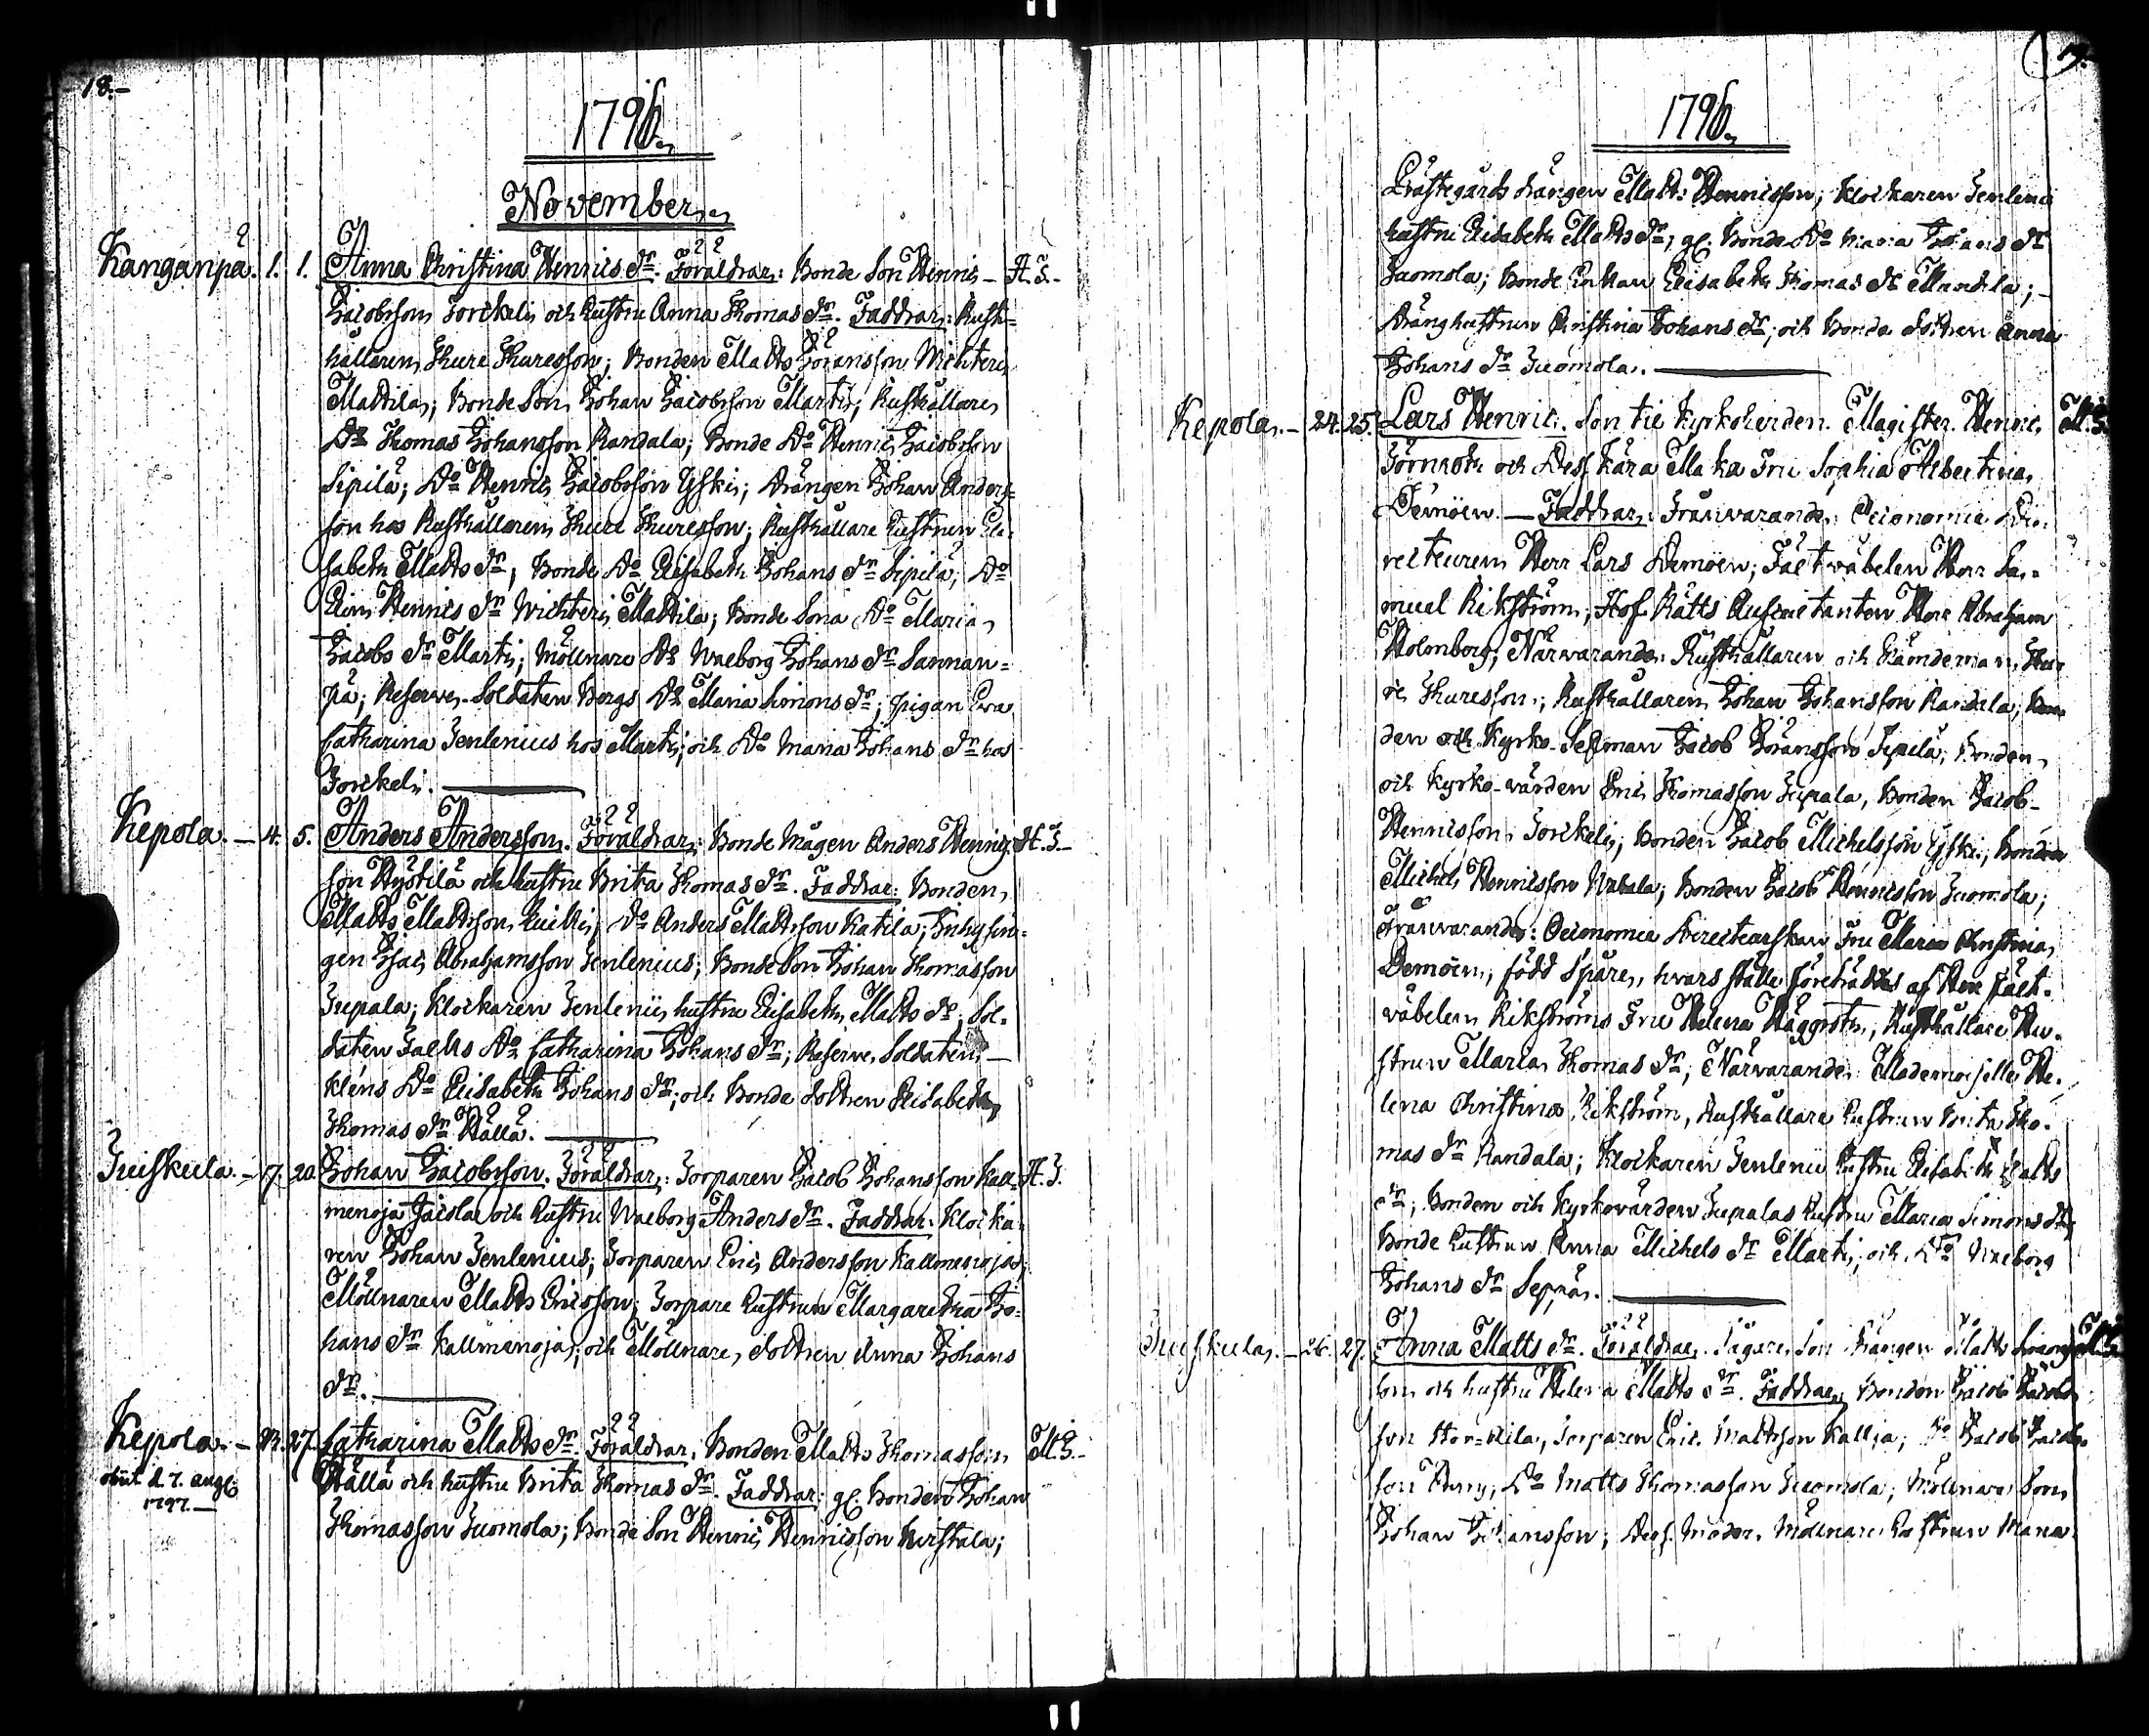 18.
1796.
November.
Kanganpå. 1. 1. Anna Christina Henrics dr. Föräldrar: Bonde Son Henric - H. F.
Jacobsson Torckeli och hustru Anna Thomas dr. Faddrar: Rust=
hållaren Thure Thuresson; Bonden Matts Göransson Wichteri
Mattila; Bonde Son Johan Jacobsson Martti; Rusthållare
Do Thomas Johansson Randala; Bonde Do Henric Jacobsson
Sipilä; Do Henric Jacobsson Yski; Drängen Johan Anders=
son hos Rusthållaren Thure Thuresson; Rusthållare hustrun Eli=
sabeth Matts dr; Bonde Do Elisabeth Johans dr Sipilä; Do
Elin Henrics dr Wichteri Mattila; Bonde Sona Do Maria
Jacobs dr Martti; Möllnare Do Walborg Johans dr Sannan=
pä; Reserve Soldaten Bergs Do Maria Simons dr; pigan Eva
Catharina Jenlenius hos Martti; och Do Maria Johans dr hos
Torckeli.
Kepola. - 4. 5. Anders Andersson. Föräldrar: Bonde Mågen Anders Henrics H. F.
son Hystilä och hustru Brita Thomas dr. Faddrar: Bonden
Matts Mattsson; Do Anders Mattsson Katila; Inhysin=
gen Isac Abrahamsson Jenlenius; Bonde Son Johan Thomasson
Jupala; Klockaren Jenlenii hustru Elisabeth Matts dr; Sol=
daten Do Catharina Johans dr; Reserve Soldaten
Kléns Do Elisabeth Johans dr; och Bonde dottren Elisabeth
Thomas dr Hällä.
Juskula. - 17. 20. Johan Jacobsson. Föräldrar: Torparen Jacob Johansson Kall= H. F.
menoja Jacola och hustru Walborg Anders dr. Faddrar: Klocka=
ren Johan Jenlenius; Torparen Eric Andersson Kallmenoja;
Möllnaren Matts Ericsson; Torpare hustrun Margaretha Jo=
hans dr Kallmenoja; och Möllnare dottren Anna Johans
dr.
Kepola. - 27. Catharina Matts dr. Föräldrar: Bonden Matts Thomasson M. F.
obiit d. 7. aug. Hällä och hustru Brita Thomas dr. Faddrar: gl. Bonden Johan
1797. Thomasson Juomola; Bonde Son Henric Henricsson Wirstala;
19.
1796.
Prästegårds drängen Matts Henricsson; Klockaren Jenlenii
hustru Elisabeth Matts dr; gl. Bonde Do Maria Johans dr
Juomola; Bonde Enkan Elisabeth Thomas dr Mandila;
Dränghustrun Christina Johans dr; och Bonde dottren Anna
Johans dr Juomola.
Kepola. - 24. 25. Lars Henric. Son til Kyrkoherden Magister Henric
Törnroth och Dess Kära Maka Fru Sophia Albertina
Demoen. - Faddrar: Frånvarande: Oeconomie Di=
recteuren Herr Lars Demoen; Fältwäbelen Herr Sa=
muel Rikström, Hof Rätts Auscultanten Herr Abraham
Holmborg; Närvarande: Rusthållaren och Nämdeman Thu=
re Thuresson; Rusthållaren Johan Johansson Randala; Bon=
den och Kyrko-Sexman Jacob Göransson Sipilä; Bonden
och Kyrko-värden Eric Thomasson Jupala, Bonden Jacob
Henricsson Torckeli; Bonden Jacob Michelsson Yski; Bonden
Michel Henricsson; Bonden Jacob Henricsson Juomola;
Frånvarande: Oeconomie Directeurskan Fru Maria Christina
Demoen, född Spåre, hvars ställe företräddes af Herr Fält=
wäbelen Rikströms Fru Helena Häggroth; Rusthållare Hu=
strun Maria Thomas dr; Närvarande: Mademoiselle He=
lena Christina Rikström, Rusthållare hustrun Brita Tho=
mas dr Randala; Klockaren Jenlenii hustru Elisabeth Matts
dr; Bonden och Kyrkovärden Jupalas hustru Maria Simons dr;
Bonde hustrun Anna Michels dr Martti; och Do Walborg
Johans dr Seppä.
Juskula. - 26. 27. Anna Matts dr. Föräldrar: Son Drängen Matts
son och hustru Helena Matts dr. Faddrar: Bonden Jacob Jacobs
son; Torparen Eric Mattsson Kallja; Do Jacob Jacobs
son; Do Matts Thomasson Juomola; Möllnare Son
Johan Johansson; Dess Moder Möllnare hustrun Maria